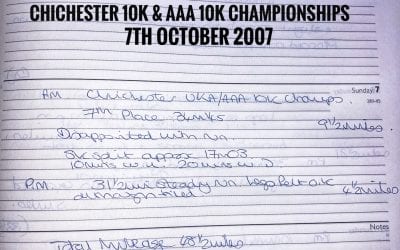 CHICHESTER 10K & AAA 10K CHAMPIONSHIPS
7TH OCTOBER 2007
Sunday 7
AM Chichester UKA/AAA 10K Champs.
7th Place 9 1/2 miles
Disappointed with run.
5K split approx
10mins w.u. 20mins w.d
P.M. 3 1/2 mi steady run. Legs felt o.k 4 1/2 miles
although tired
Notes
Total Mileage 68 1/2 miles